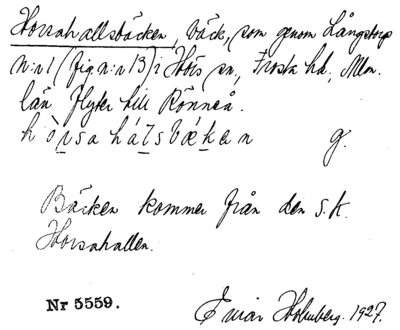 Horsahallsbäcken, bäck, som genom Långstorp
N:r 1 (fig. n:r 13) i Hörs sn, Frosta hd, Mlm.
län flyter till Rönneå.
g.
Bäcken kommer från den s.k.
Horsahallen.
Nr 5559.
Einar Holmberg. 1927.